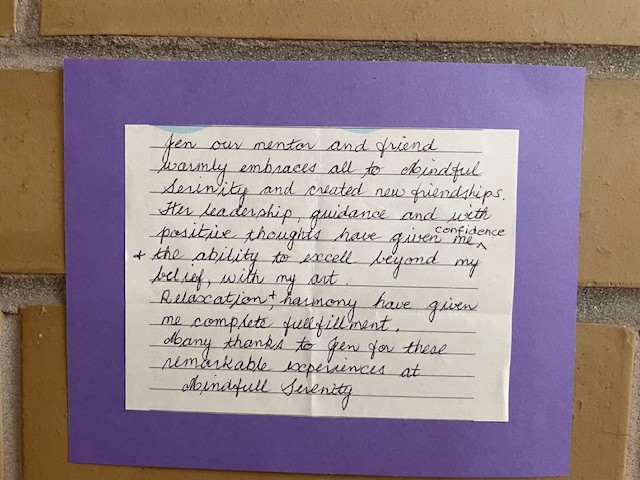 Jen our mentor and friend
warmly embraces all to Mindful
Serinity and created new friendships.
Her leadership, guidance and with
positive thoughts have given me ^ confidence
+ the ability to excell beyond my
belief, with my art.
Relaxcation + harmony have given
me complete fullfillment.
Many thanks to Jen for these
remarkable experiences at
Mindfull Serenity